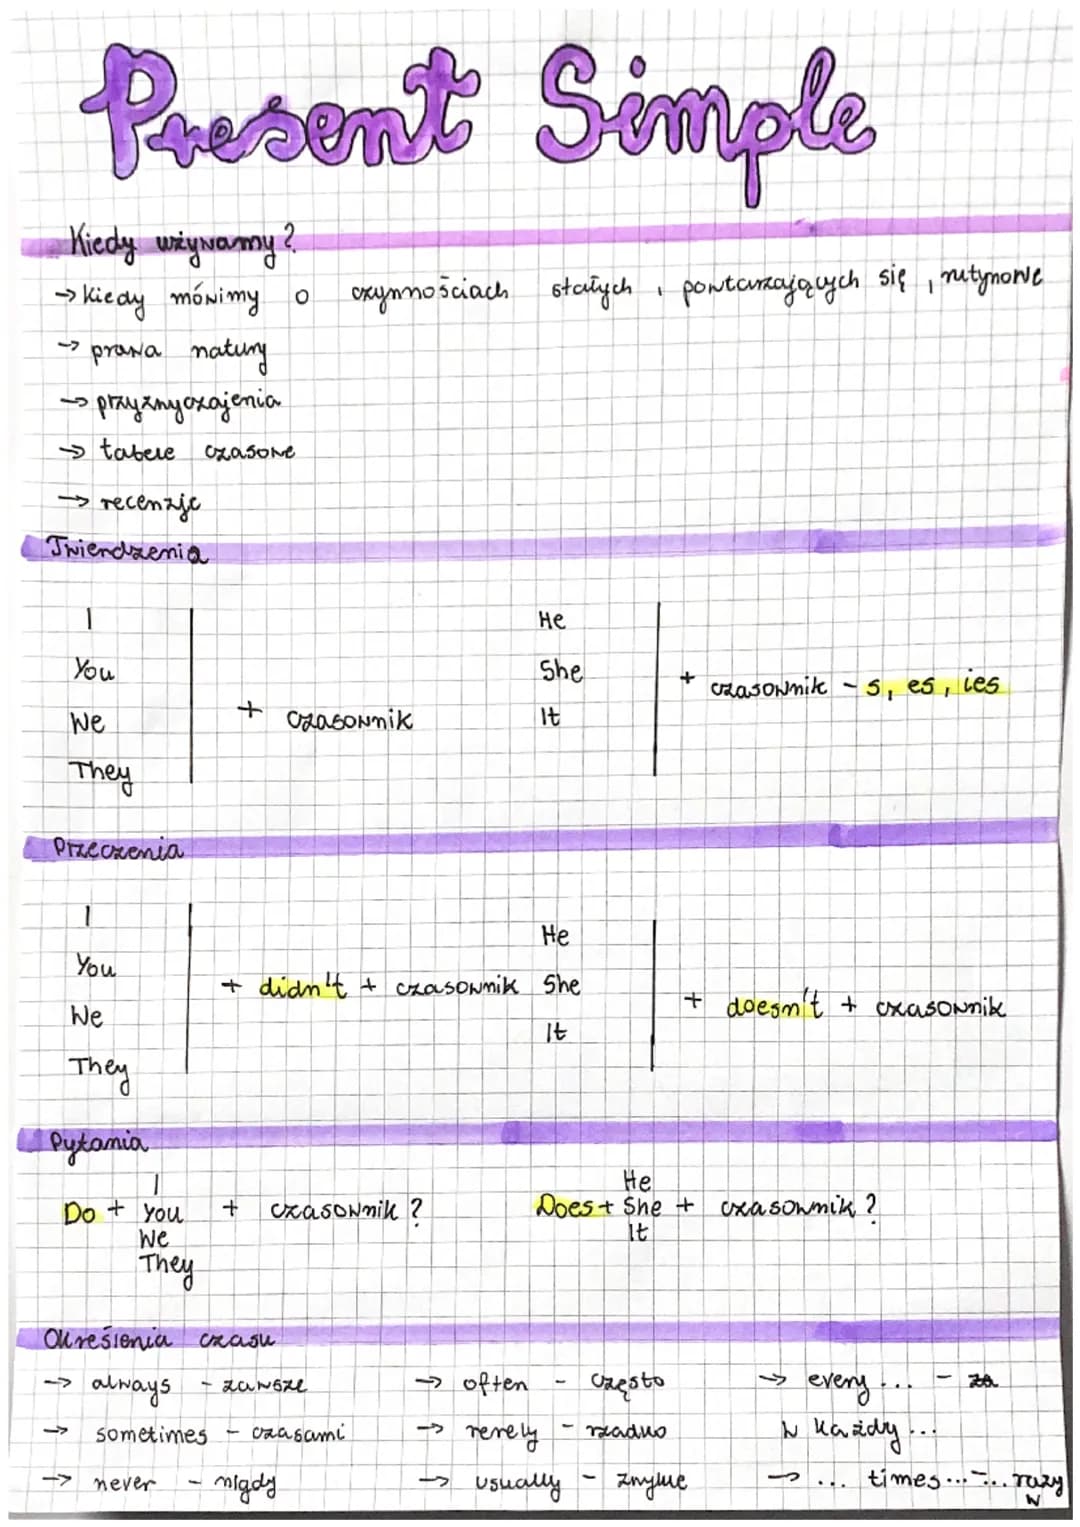 Present Simple
Kiedy używamy?
→ kiedy mówimy o czynnościach stałych, powtarzających się, rutynowe
→ prawa natury
→ przyzwyczajenia
→ tabele czasowe
→ recenzje
Twierdzenia
I
You
We
They
+ czasownik
He
She
It
+ czasownik - s, es, ies
Przeczenia
I
You
We
They
+ didn't + czasownik
He
She
It
+ doesn't + czasownik
Pytania
I
Do + you + czasownik?
We
They
He
Does + She + czasownik?
It
Określenia czasu
→ always - zawsze
→ sometimes - czasami
→ never - nigdy
→ often - często
→ rerely - rzadko
→ usually - zwykle
→ every... - za
w każdy...
→ ... times... - ... razy
w